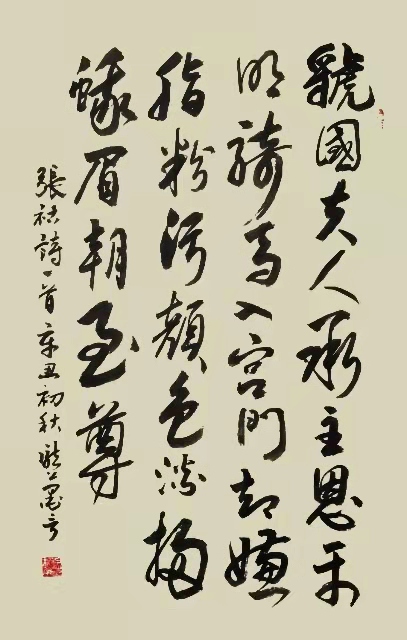 虢國夫人承主恩平
明騎馬入宮門却嫌
脂粉污顏色淡掃
蛾眉朝至尊
張祜詩一首辛丑初秋